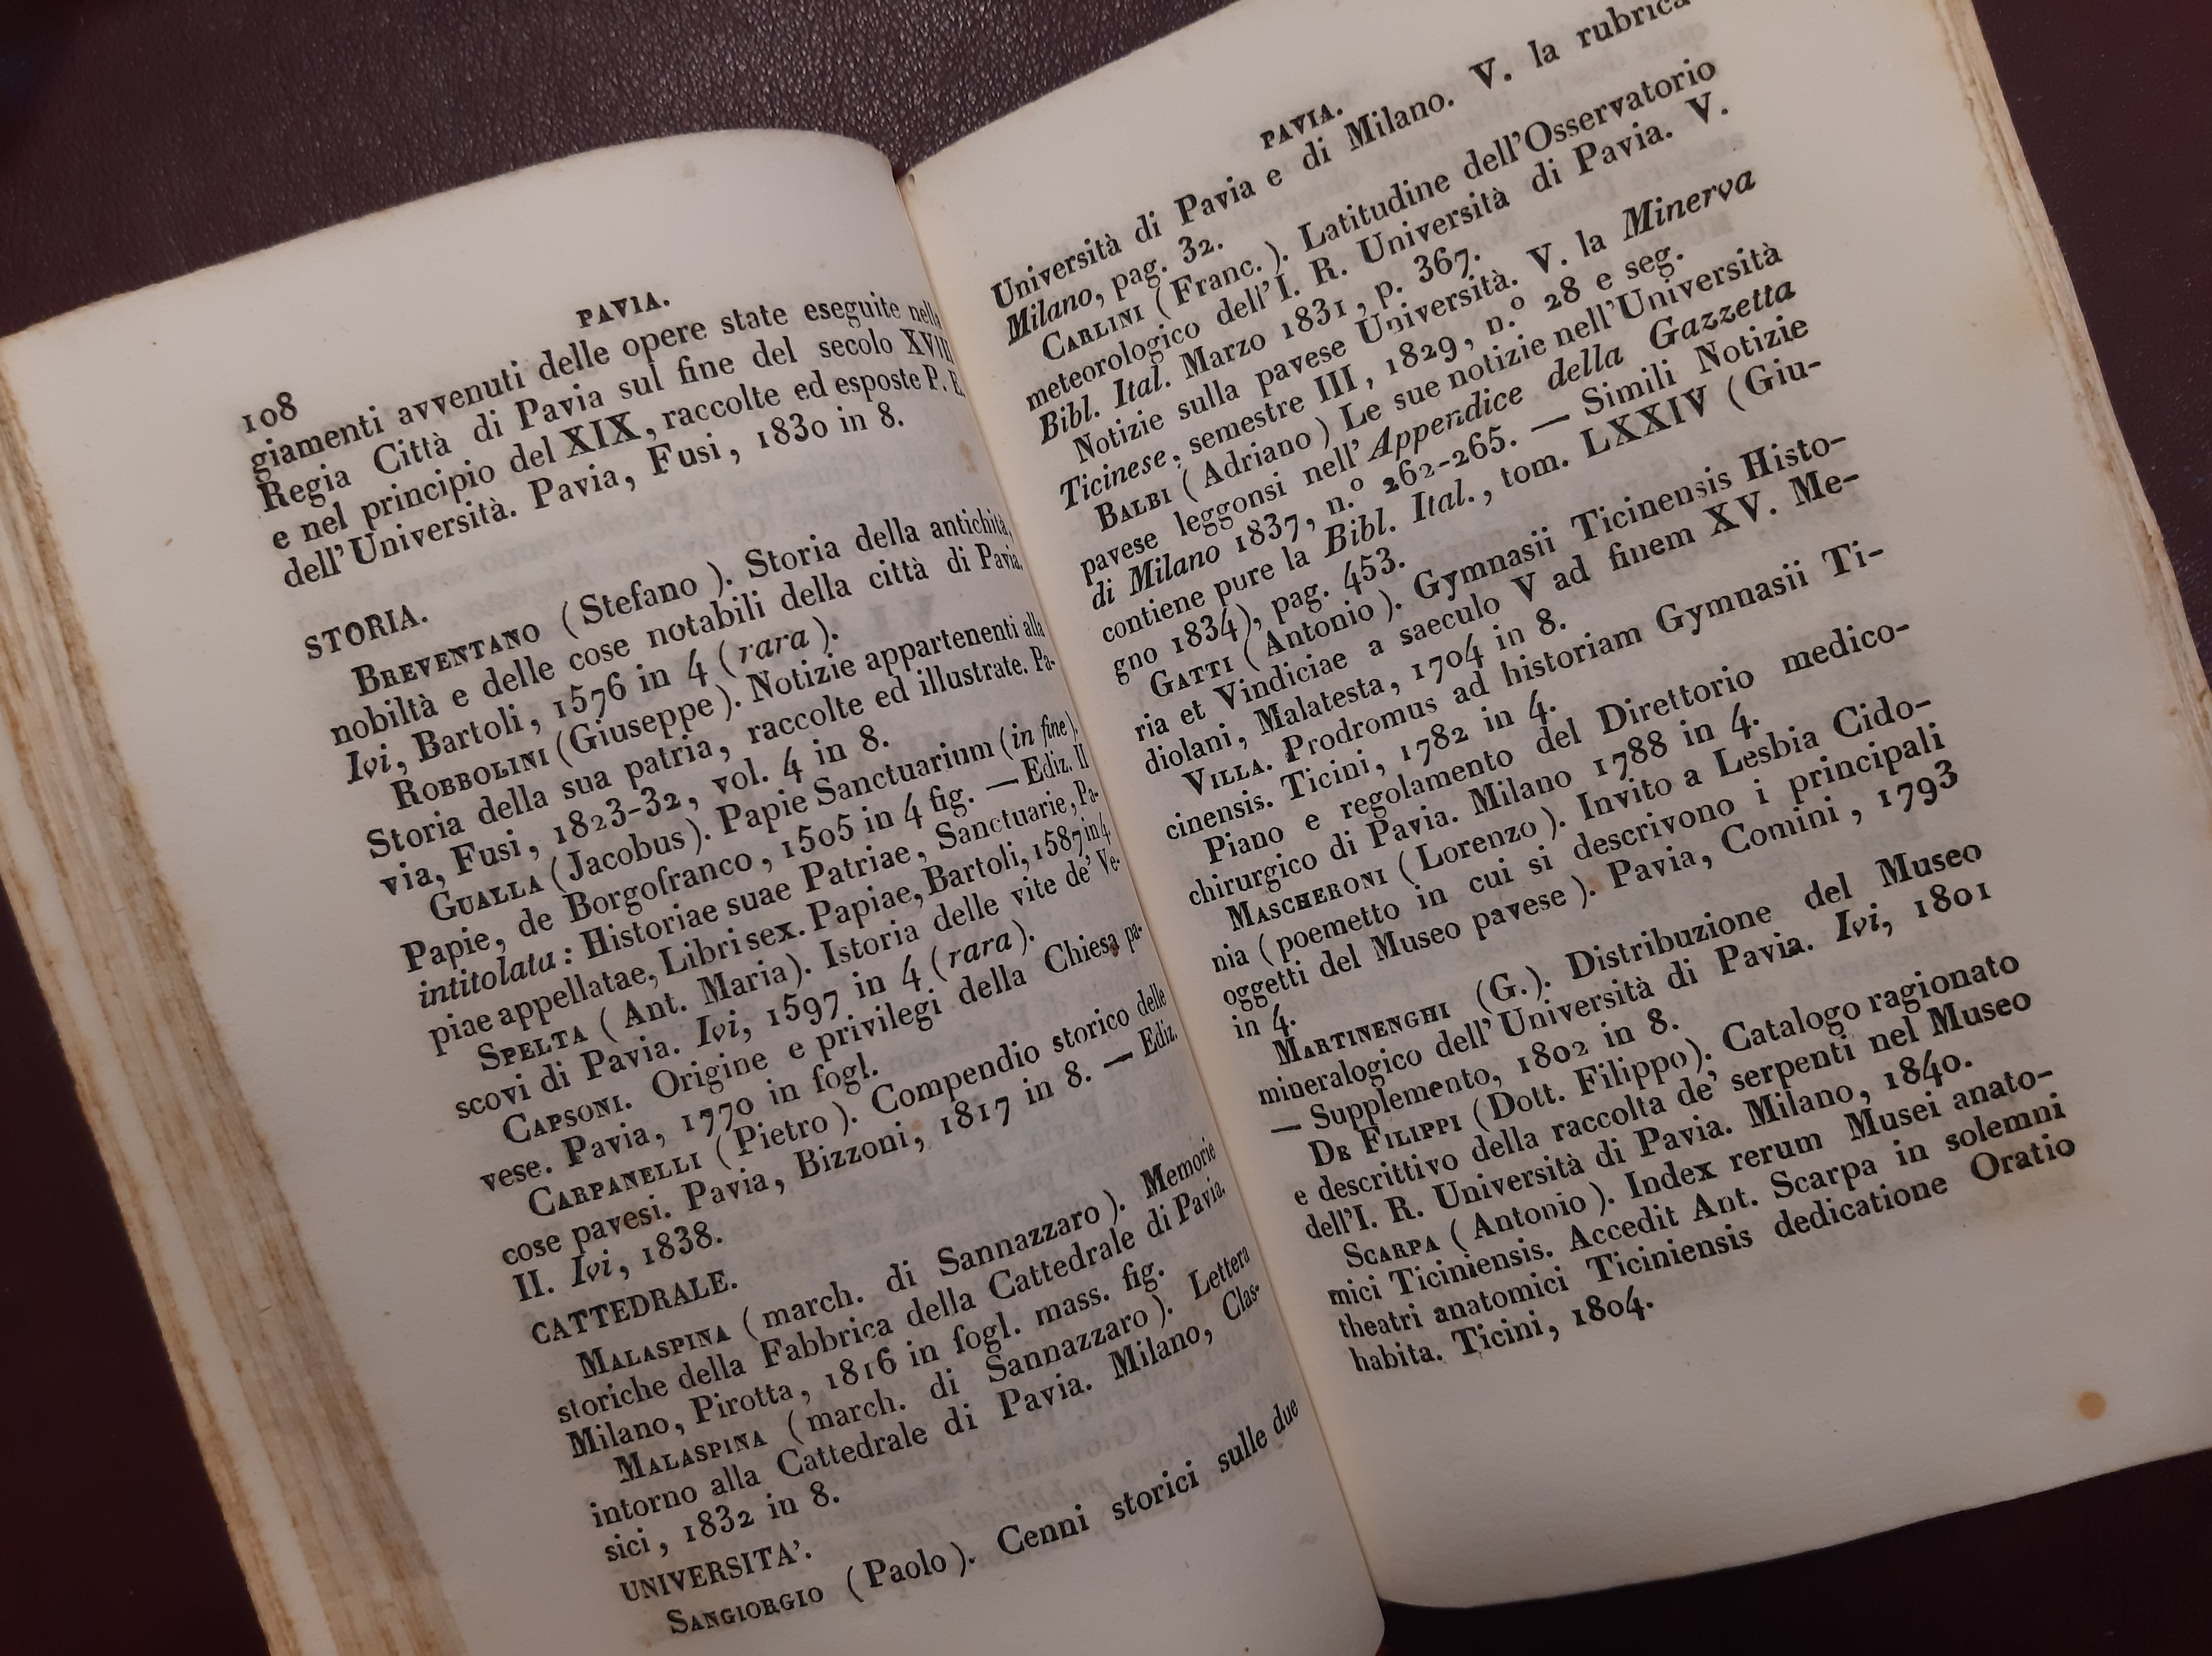 108
PAVIA.
giamenti avvenuti delle opere state eseguite nella
Regia Città di Pavia sul fine del secolo XVIII
e nel principio del XIX, raccolte ed esposte P. E.
dell'Università. Pavia, Fusi, 1830 in 8.
STORIA.
BREVENTANO (Stefano). Storia della antichità,
nobiltà e delle cose notabili della città di Pavia,
Ivi, Bartoli, 1576 in 4 (rara).
ROBBOLINI (Giuseppe). Notizie appartenenti alla
Storia della sua patria, raccolte ed illustrate. Pa-
via, Fusi, 1823-32, vol. 4 in 8.
GUALLA (Jacobus). Papie Sanctuarium (in fine).
Papie, de Borgofranco, 1505 in 4 fig. — Ediz. II
intitolata: Historiae suae Patriae, Sanctuarie, Pa-
piae appellatae, Libri sex. Papiae, Bartoli, 1587 in 4
SPELTA (Ant. Maria). Istoria delle vite de' Ve-
scovi di Pavia. Ivi, 1597 in 4 (rara).
CAPSONI. Origine e privilegi della Chiesa pa-
vese. Pavia, 1770 in fogl.
CARPANELLI (Pietro). Compendio storico delle
cose pavesi. Pavia, Bizzoni, 1817 in 8. — Ediz.
II. Ivi, 1838.
CATTEDRALE.
MALASPINA (march. di Sannazzaro). Memorie
storiche della Fabbrica della Cattedrale di Pavia.
Milano, Pirotta, 1816 in fogl. mass. fig.
MALASPINA (march. di Sannazzaro). Lettera
intorno alla Cattedrale di Pavia. Milano, Clas-
sici, 1832 in 8.
UNIVERSITA'.
SANGIORGIO (Paolo). Cenni storici sulle due
PAVIA.
Università di Pavia e di Milano. V. la rubrica
Milano, pag. 32.
CARLINI (Franc.). Latitudine dell'Osservatorio
meteorologico dell'I. R. Università di Pavia. V.
Bibl. Ital. Marzo 1831, p. 367.
Notizie sulla pavese Università. V. la Minerva
Ticinese, semestre III, 1829, n.° 28 e seg.
BALBI (Adriano) Le sue notizie nell'Università
pavese leggonsi nell'Appendice della Gazzetta
di Milano 1837, n.° 262-265. — Simili Notizie
contiene pure la Bibl. Ital., tom. LXXIV (Giu-
gno 1834), pag. 453.
GATTI (Antonio). Gymnasii Ticinensis Histo-
ria et Vindiciae a saeculo V ad finem XV. Me-
diolani, Malatesta, 1704 in 8.
VILLA. Prodromus ad historiam Gymnasii Ti-
cinensis. Ticini, 1782 in 4.
Piano e regolamento del Direttorio medico-
chirurgico di Pavia. Milano 1788 in 4.
MASCHERONI (Lorenzo). Invito a Lesbia Cido-
nia (poemetto in cui si descrivono i principali
oggetti del Museo pavese). Pavia, Comini, 1793
in 4.
MARTINENGHI (G.). Distribuzione del Museo
mineralogico dell'Università di Pavia. Ivi, 1801
— Supplemento, 1802 in 8.
DE FILIPPI (Dott. Filippo). Catalogo ragionato
e descrittivo della raccolta de' serpenti nel Museo
dell'I. R. Università di Pavia. Milano, 1840.
SCARPA (Antonio). Index rerum Musei anato-
mici Ticiniensis. Accedit Ant. Scarpa in solemni
theatri anatomici Ticiniensis dedicatione Oratio
habita. Ticini, 1804.